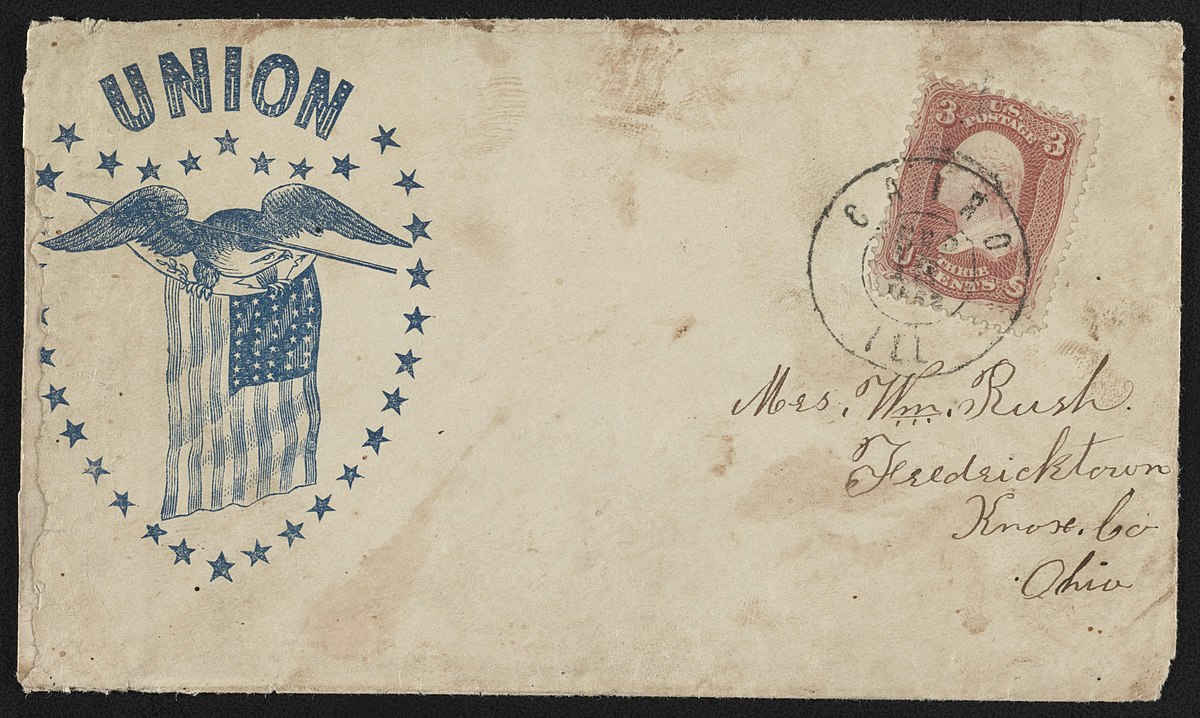 UNION
3 U.S. 3
POSTAGE
THREE
CENTS
CAIRO
1862
ILL
Mrs. Wm. Rush.
Fredricktown
Knox. Co
Ohio